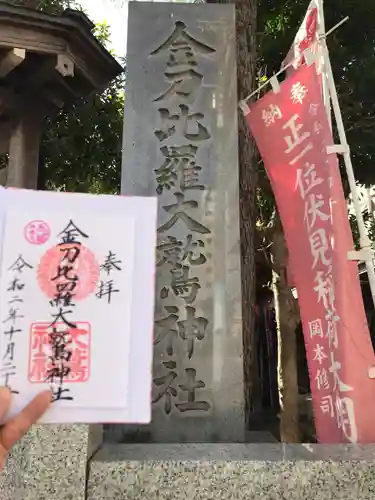 金刀比羅大鷲神社
奉納
正一位伏見稲荷大明
岡本修司
奉拝
金刀比羅大鷲神社
令和二年十月二